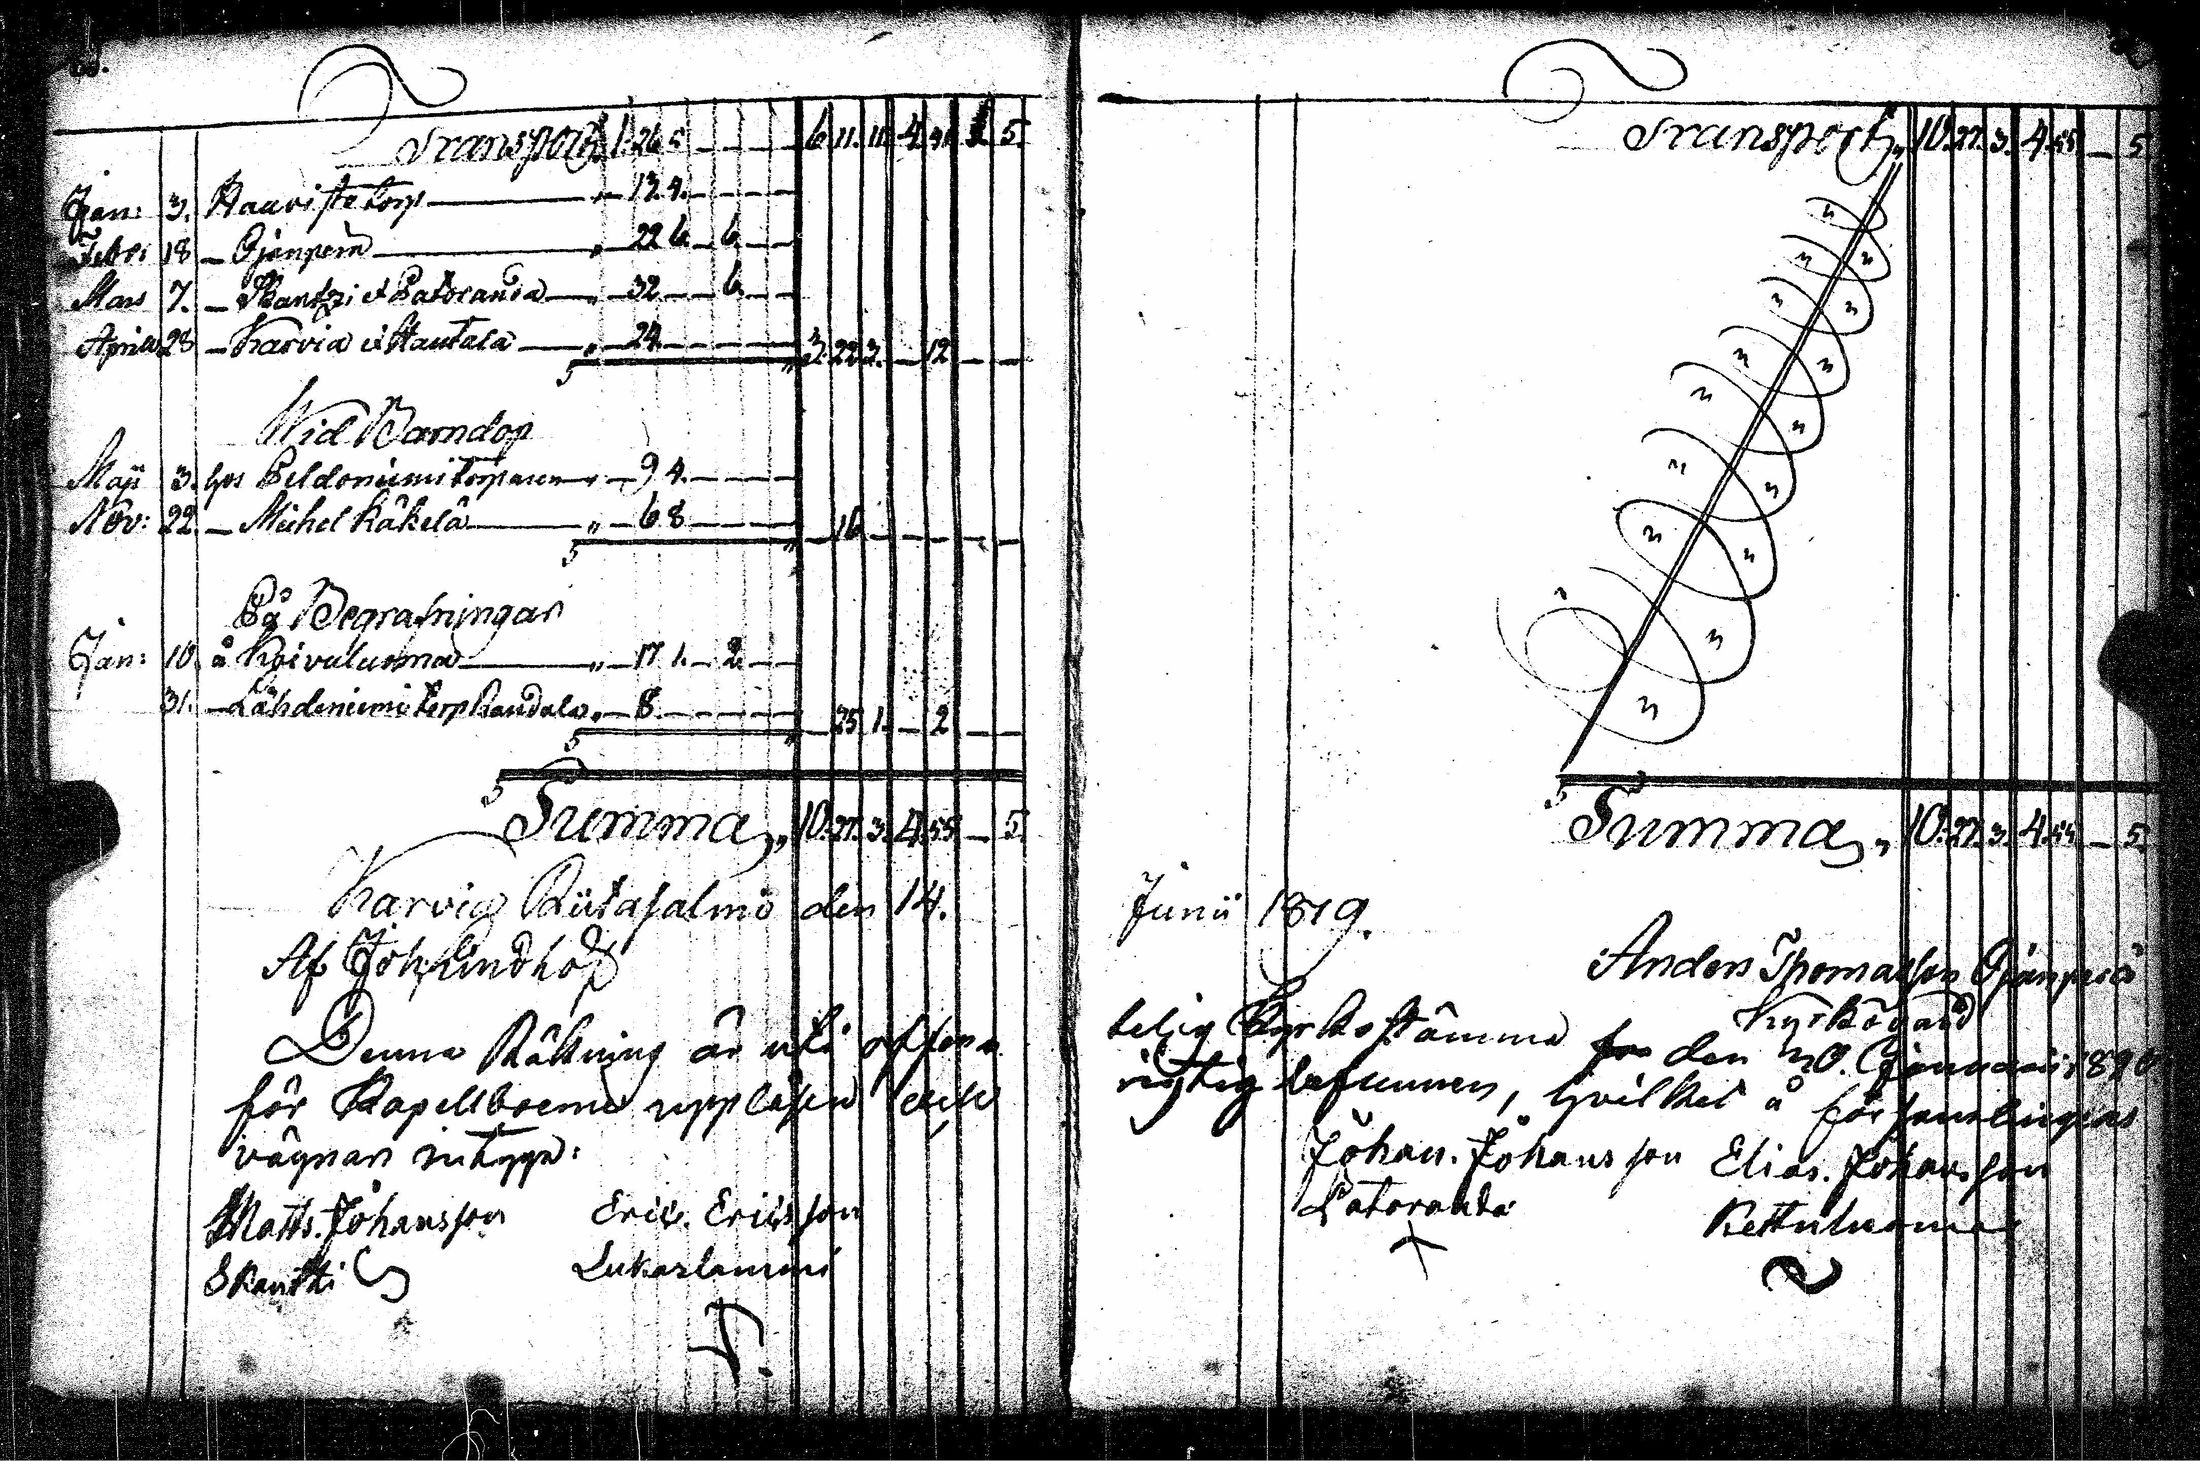 Transport 1. 26 5 — — — 6. 11. 11. 4. 5.
Jan: 3. Hauristo torp — „ — 12 4. — — —
Febr: 18 — Ojanperä — „ — 22 6. — 6 —
Mars 7. — Skantzi et Patoranda — „ — 32 — — 6 —
Aprill 28 — Karvia et Hautala — „ — 24. — — — 3. 22 3. — 12 — —
Wid Barndop
Maji 3. hos Peldoniemi torparen — „ — 9 4. — — —
Nov: 22. — Michel Käkelä — „ — 6 8 — — — — 16 — — — — —
På Begrafningar
Jan: 10. å Koivuluoma — „ — 17 1. — 2 —
31. — Lähdeniemi torp Kaudala „ — 8. — — — — 25 1. — 2 — —
Summa „ 10. 27. 3. 4. 55 — 5.
Karvia Riitasalmo den 14.
Af Joh. Lindholf
Denna Räkning är uti offen
för Kapellboerne uppläsen och
vägnar intyga:
Matts. Johansson Eric. Ericsson
Skantti Lukaslammi
Transport „ 10. 27. 3. 4. 55 — 5
Summa „ 10. 27. 3. 4. 55 — 5.
Junii 1819.
Anders Thomasson Ojanperä
Kyrkogård
telig Kyrkostämma den 30. Januarii 1820
rigtig befunnen, hvilket å församlingens
Johan. Johansson Elias. Johansson
Patoranda Kettuluoma